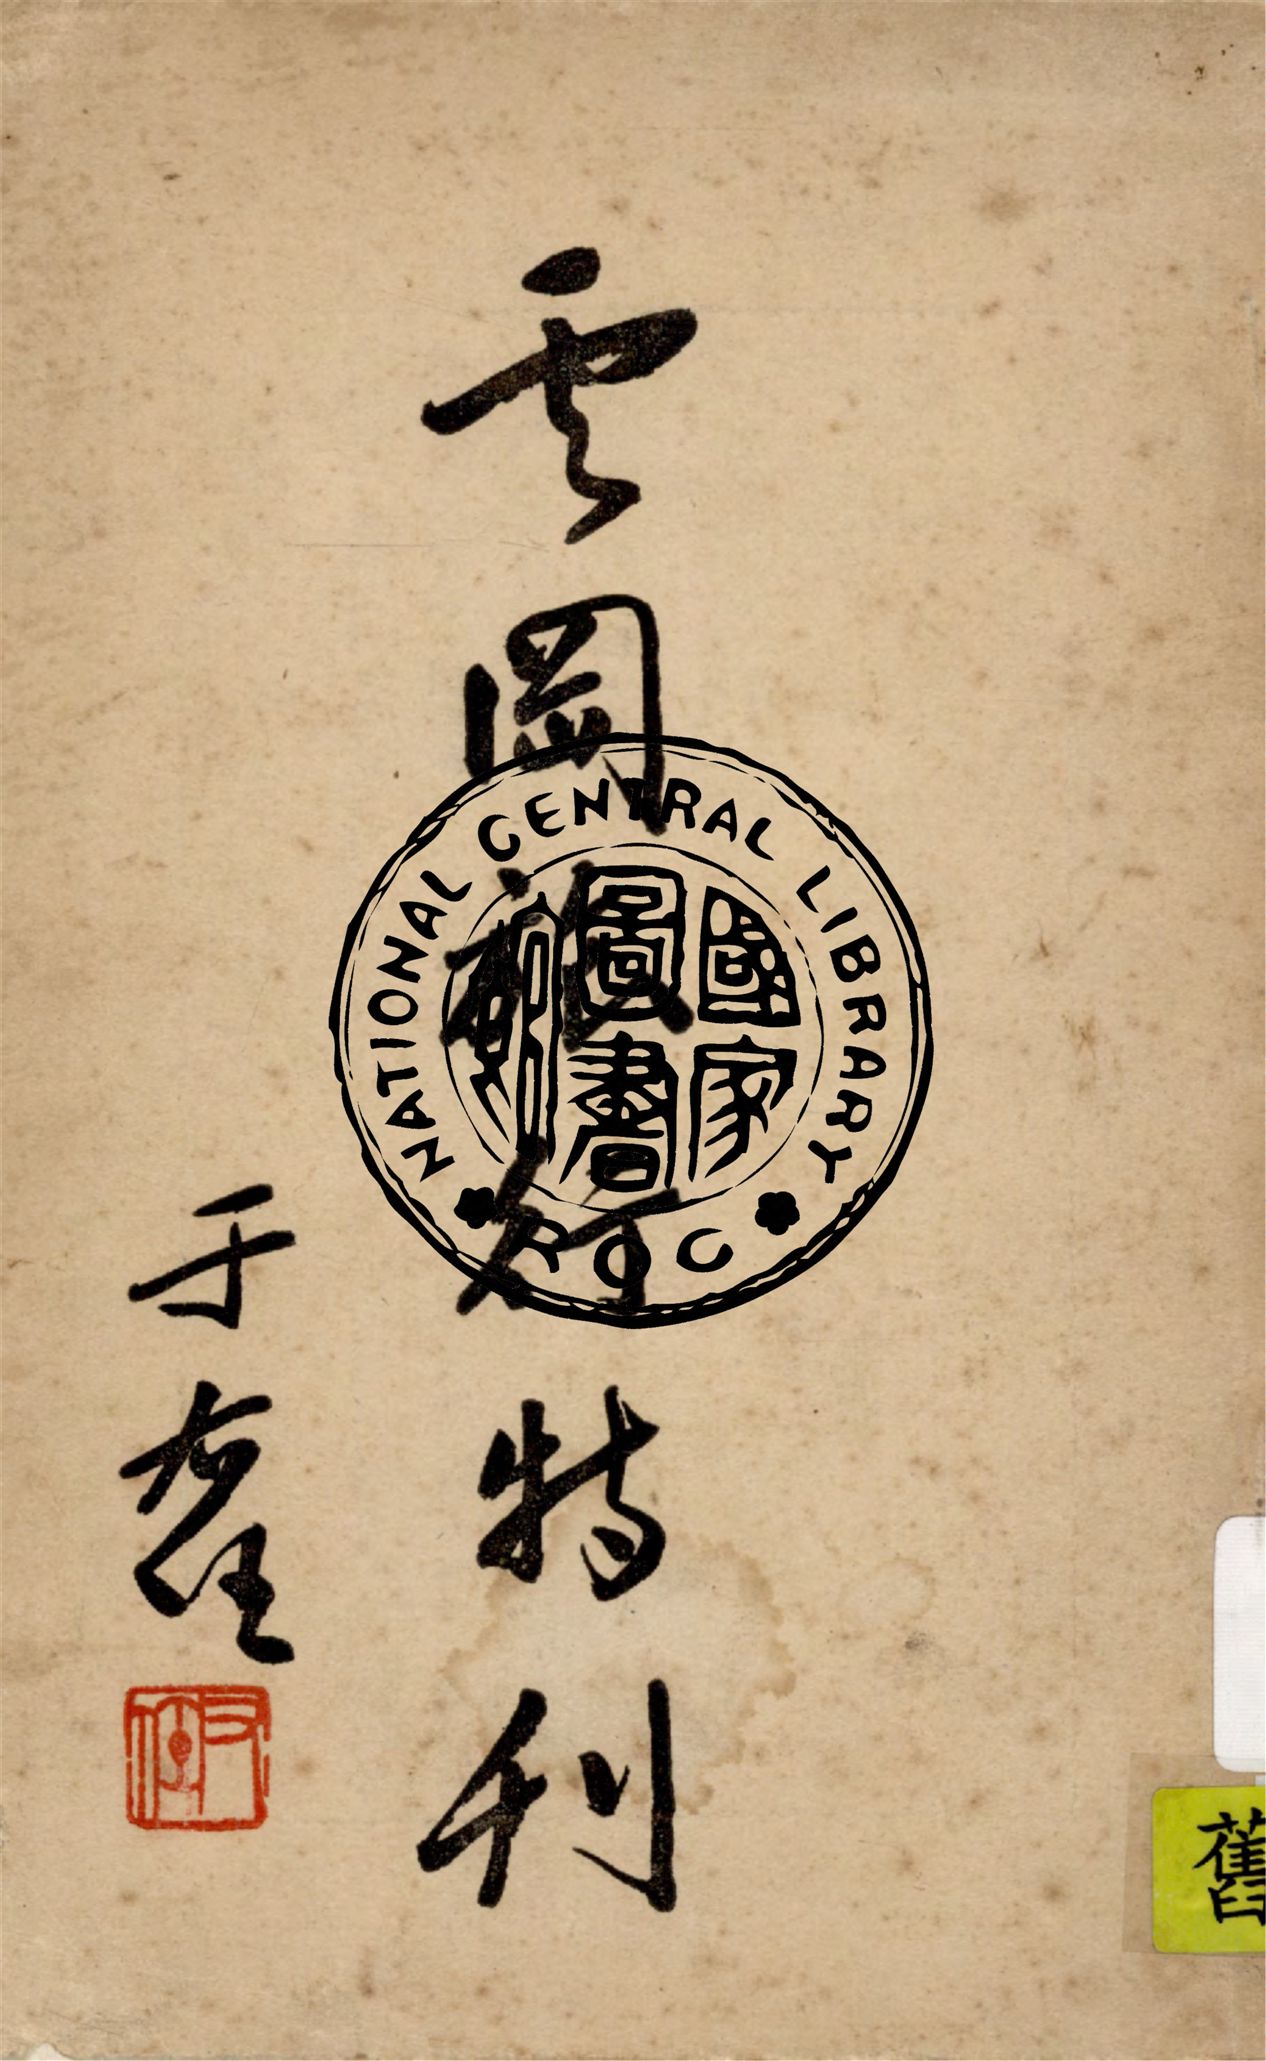 雲岡旅行特刊
于右任
右任
NATIONAL CENTRAL LIBRARY
國家圖書館
ROC
舊